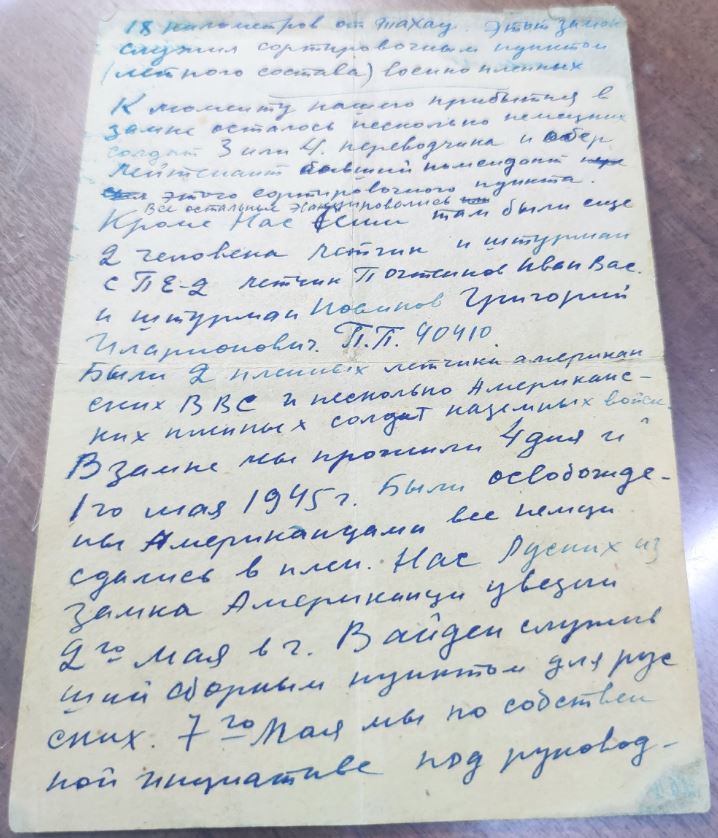 18 километров от Тахау. Этот замок
служил сортировочным пунктом
(летного состава) военнопленных
К моменту нашего прибытия в
замке осталось несколько немецких
солдат 3 или 4. переводчика и обер
лейтенант бывший комендант
этого сортировочного пункта.
Все остальные эвакуировались
Кроме Нас там были еще
2 человека летчик и штурман
с ПЕ-2 летчик Иван Вас.
и штурман Новиков Григорий
Иларионович. П.П. 40410.
Были 2 пленных летчики американ
ских ВВС и несколько Американс-
ких пленных солдат наземных войск.
В замке мы прожили 4 дня и
1го мая 1945 г. Были освобожде-
ны Американцами все немцы
сдались в плен. Нас Русских из
замка Американци увезли
2го мая в г. Вайден служив
ший сборным пунктом для рус
ских. 7го Мая мы по собствен
ной инициативе под руковод-